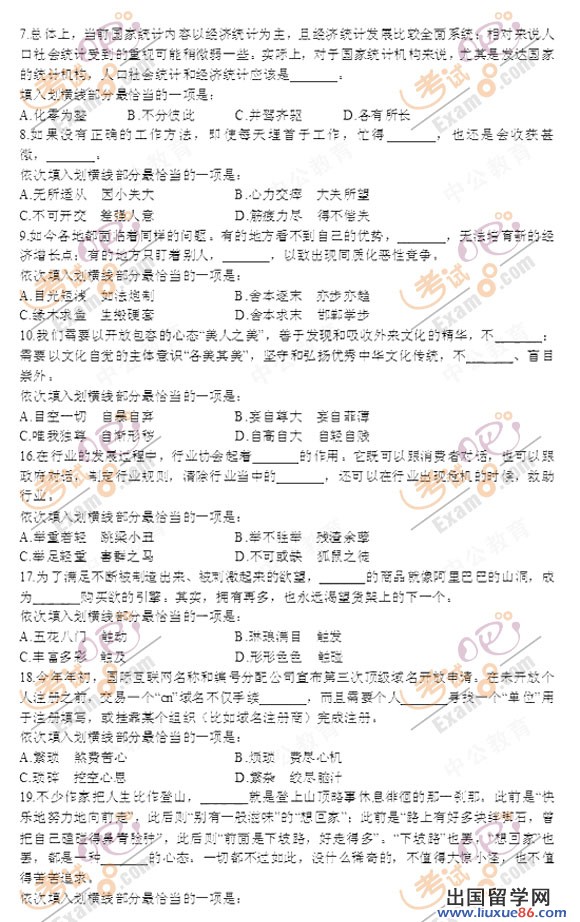 7.总体上，当前国家统计内容以经济统计为主，且经济统计发展比较全面系统；相对来说人
口社会统计受到的重视可能稍微弱一些。实际上，对于国家统计机构来说，尤其是发达国家
的统计机构，人口社会统计和经济统计应该是_______。
填入划横线部分最恰当的一项是：
A.化零为整 B.不分彼此 C.并驾齐驱 D.各有所长
8.如果没有正确的工作方法，即使每天埋首于工作，忙得_______，也还是会收获甚
微，_______。
依次填入划横线部分最恰当的一项是：
A.无所适从 因小失大 B.心力交瘁 大失所望
C.不可开交 差强人意 D.筋疲力尽 得不偿失
9.如今各地都面临着同样的问题。有的地方看不到自己的优势，_______，无法培育新的经
济增长点；有的地方只盯着别人，_______，以致出现同质化恶性竞争。
依次填入划横线部分最恰当的一项是：
A.目光短浅 如法炮制 B.舍本逐末 亦步亦趋
C.缘木求鱼 生搬硬套 D.舍本求末 邯郸学步
10.我们需要以开放包容的心态“美人之美”，善于发现和吸收外来文化的精华，不_______；
需要以文化自觉的主体意识“各美其美”，坚守和弘扬优秀中华文化传统，不_______、盲目
崇外。
依次填入划横线部分最恰当的一项是：
A.目空一切 自暴自弃 B.妄自尊大 妄自菲薄
C.唯我独尊 自惭形秽 D.自高自大 自轻自贱
16.在行业的发展过程中，行业协会起着_______的作用。它既可以跟消费者对话，也可以跟
政府对话，制定行业规则，清除行业当中的_______，还可以在行业出现危机的时候，救助
行业。
依次填入划横线部分最恰当的一项是：
A.举重若轻 跳梁小丑 B.举不胜举 残渣余孽
C.举足轻重 害群之马 D.不可或缺 狐鼠之徒
17.为了满足不断被制造出来、被刺激起来的欲望，_______的商品就像阿里巴巴的山洞，成
为_______购买欲的引擎。其实，拥有再多，也永远渴望货架上的下一个。
依次填入划横线部分最恰当的一项是：
A.五花八门 触动 B.琳琅满目 触发
C.丰富多彩 触及 D.形形色色 触碰
18.今年年初，国际互联网名称和编号分配公司宣布第三次顶级域名开放申请。在未开放个
人注册之前，交易一个“cn”域名不仅手续_______，而且需要个人_______寻找一个“单位”用
于注册填写，或挂靠某个组织（比如域名注册商）完成注册。
依次填入划横线部分最恰当的一项是：
A.繁琐 煞费苦心 B.烦琐 费尽心机
C.琐碎 挖空心思 D.繁杂 绞尽脑汁
19.不少作家把人生比作登山，_______就是登上山顶略事休息徘徊的那一刹那，此前是“快
乐地努力地向前走”，此后则“别有一般滋味”的“想回家”；此前是“路上有好多块绊脚石，曾
把自己碰碰得鼻青脸肿”，此后则“前面是下坡路，好走得多”。“下坡路”也罢，“想回家”也
罢，都是一种_______的心态。一切都不过如此，没什么稀奇的，不值得大惊小怪，也不值
得苦苦追求。
依次填入划横线部分最恰当的一项是：
考试吧
Exam8.com
中公教育
出国留学网
www.liuxue86.com